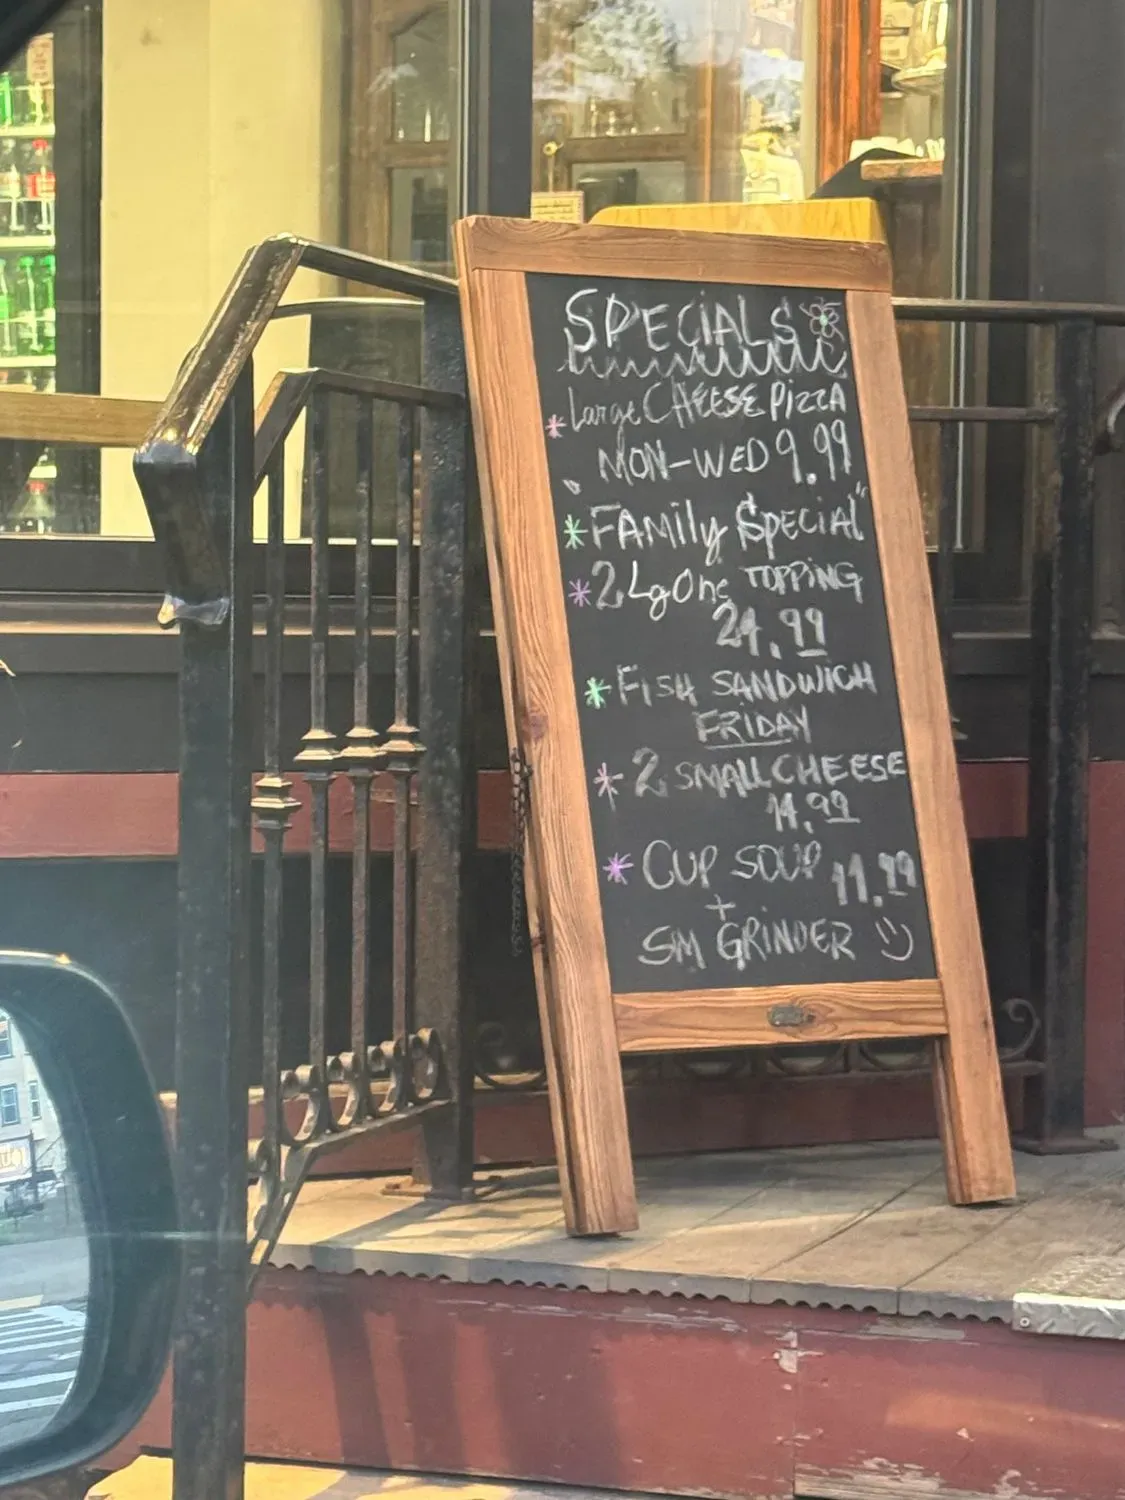 SPECiALS
* Large CHEESE PizzA
MON-WED 9.99
"FAMily Special"
* 2 Lg One TOPPiNG
24.99
* FiSH SANDWiCH
FRiDAY
* 2 SMALL CHEESE
14.99
* CUP SOUP 11.99
+
SM GRiNDER